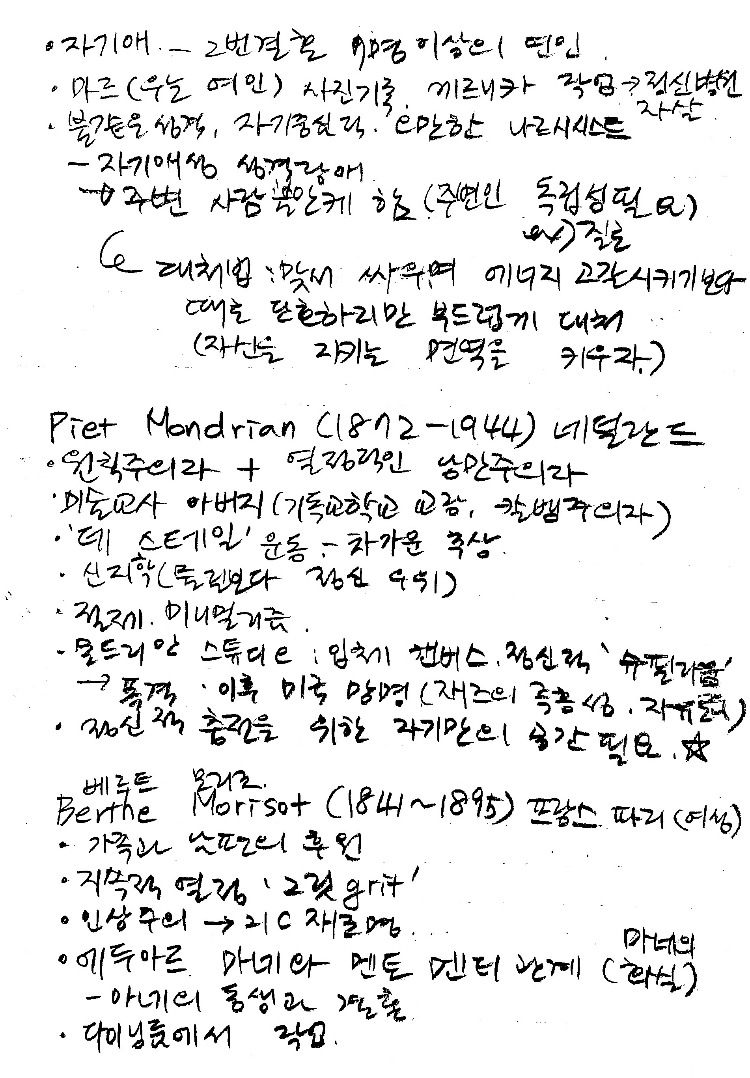 · 자기애 - 2번결혼 10명 이상의 연인
· 마르(우는 여인) 사진기록, 게르니카 작업 → 정신병원
· 불같은 성격, 자기중심적. 오만한 나르시시스트 자살
- 자기애성 성격장애
→ 주변 사람 불안케 함 (주변인 독립성필요)
ex) 질로
대처법 : 맞서 싸우며 에너지 고갈시키기보다
때로 단호하지만 부드럽게 대처
(자신을 지키는 면역을 키우자.)
Piet Mondrian (1872-1944) 네덜란드
· 원칙주의자 + 열정적인 낭만주의자
· 미술교사 아버지 (기독교학교 교장, 칼뱅주의자)
· '데 스테일' 운동 - 차가운 추상
· 신지학 (물질보다 정신 우위)
· 절제. 미니멀리즘
· 몬드리안 스튜디오 : 입체 캔버스. 정신적 '슈필라움'
→ 폭격 · 이후 미국 망명 (재즈의 즉흥성. 자유로움)
· 정신적 충전을 위한 자기만의 공간 필요. ☆
베르트 모리조.
Berthe Morisot (1841~1895) 프랑스 파리 (여성)
· 가족과 남편의 후원
· 지속적 열정 '그릿 grit'
· 인상주의 → 21C 재조명
· 에두아르 마네와 멘토 멘티 관계 (마네의 화실)
- 마네의 동생과 결혼
· 다이닝룸에서 작업.